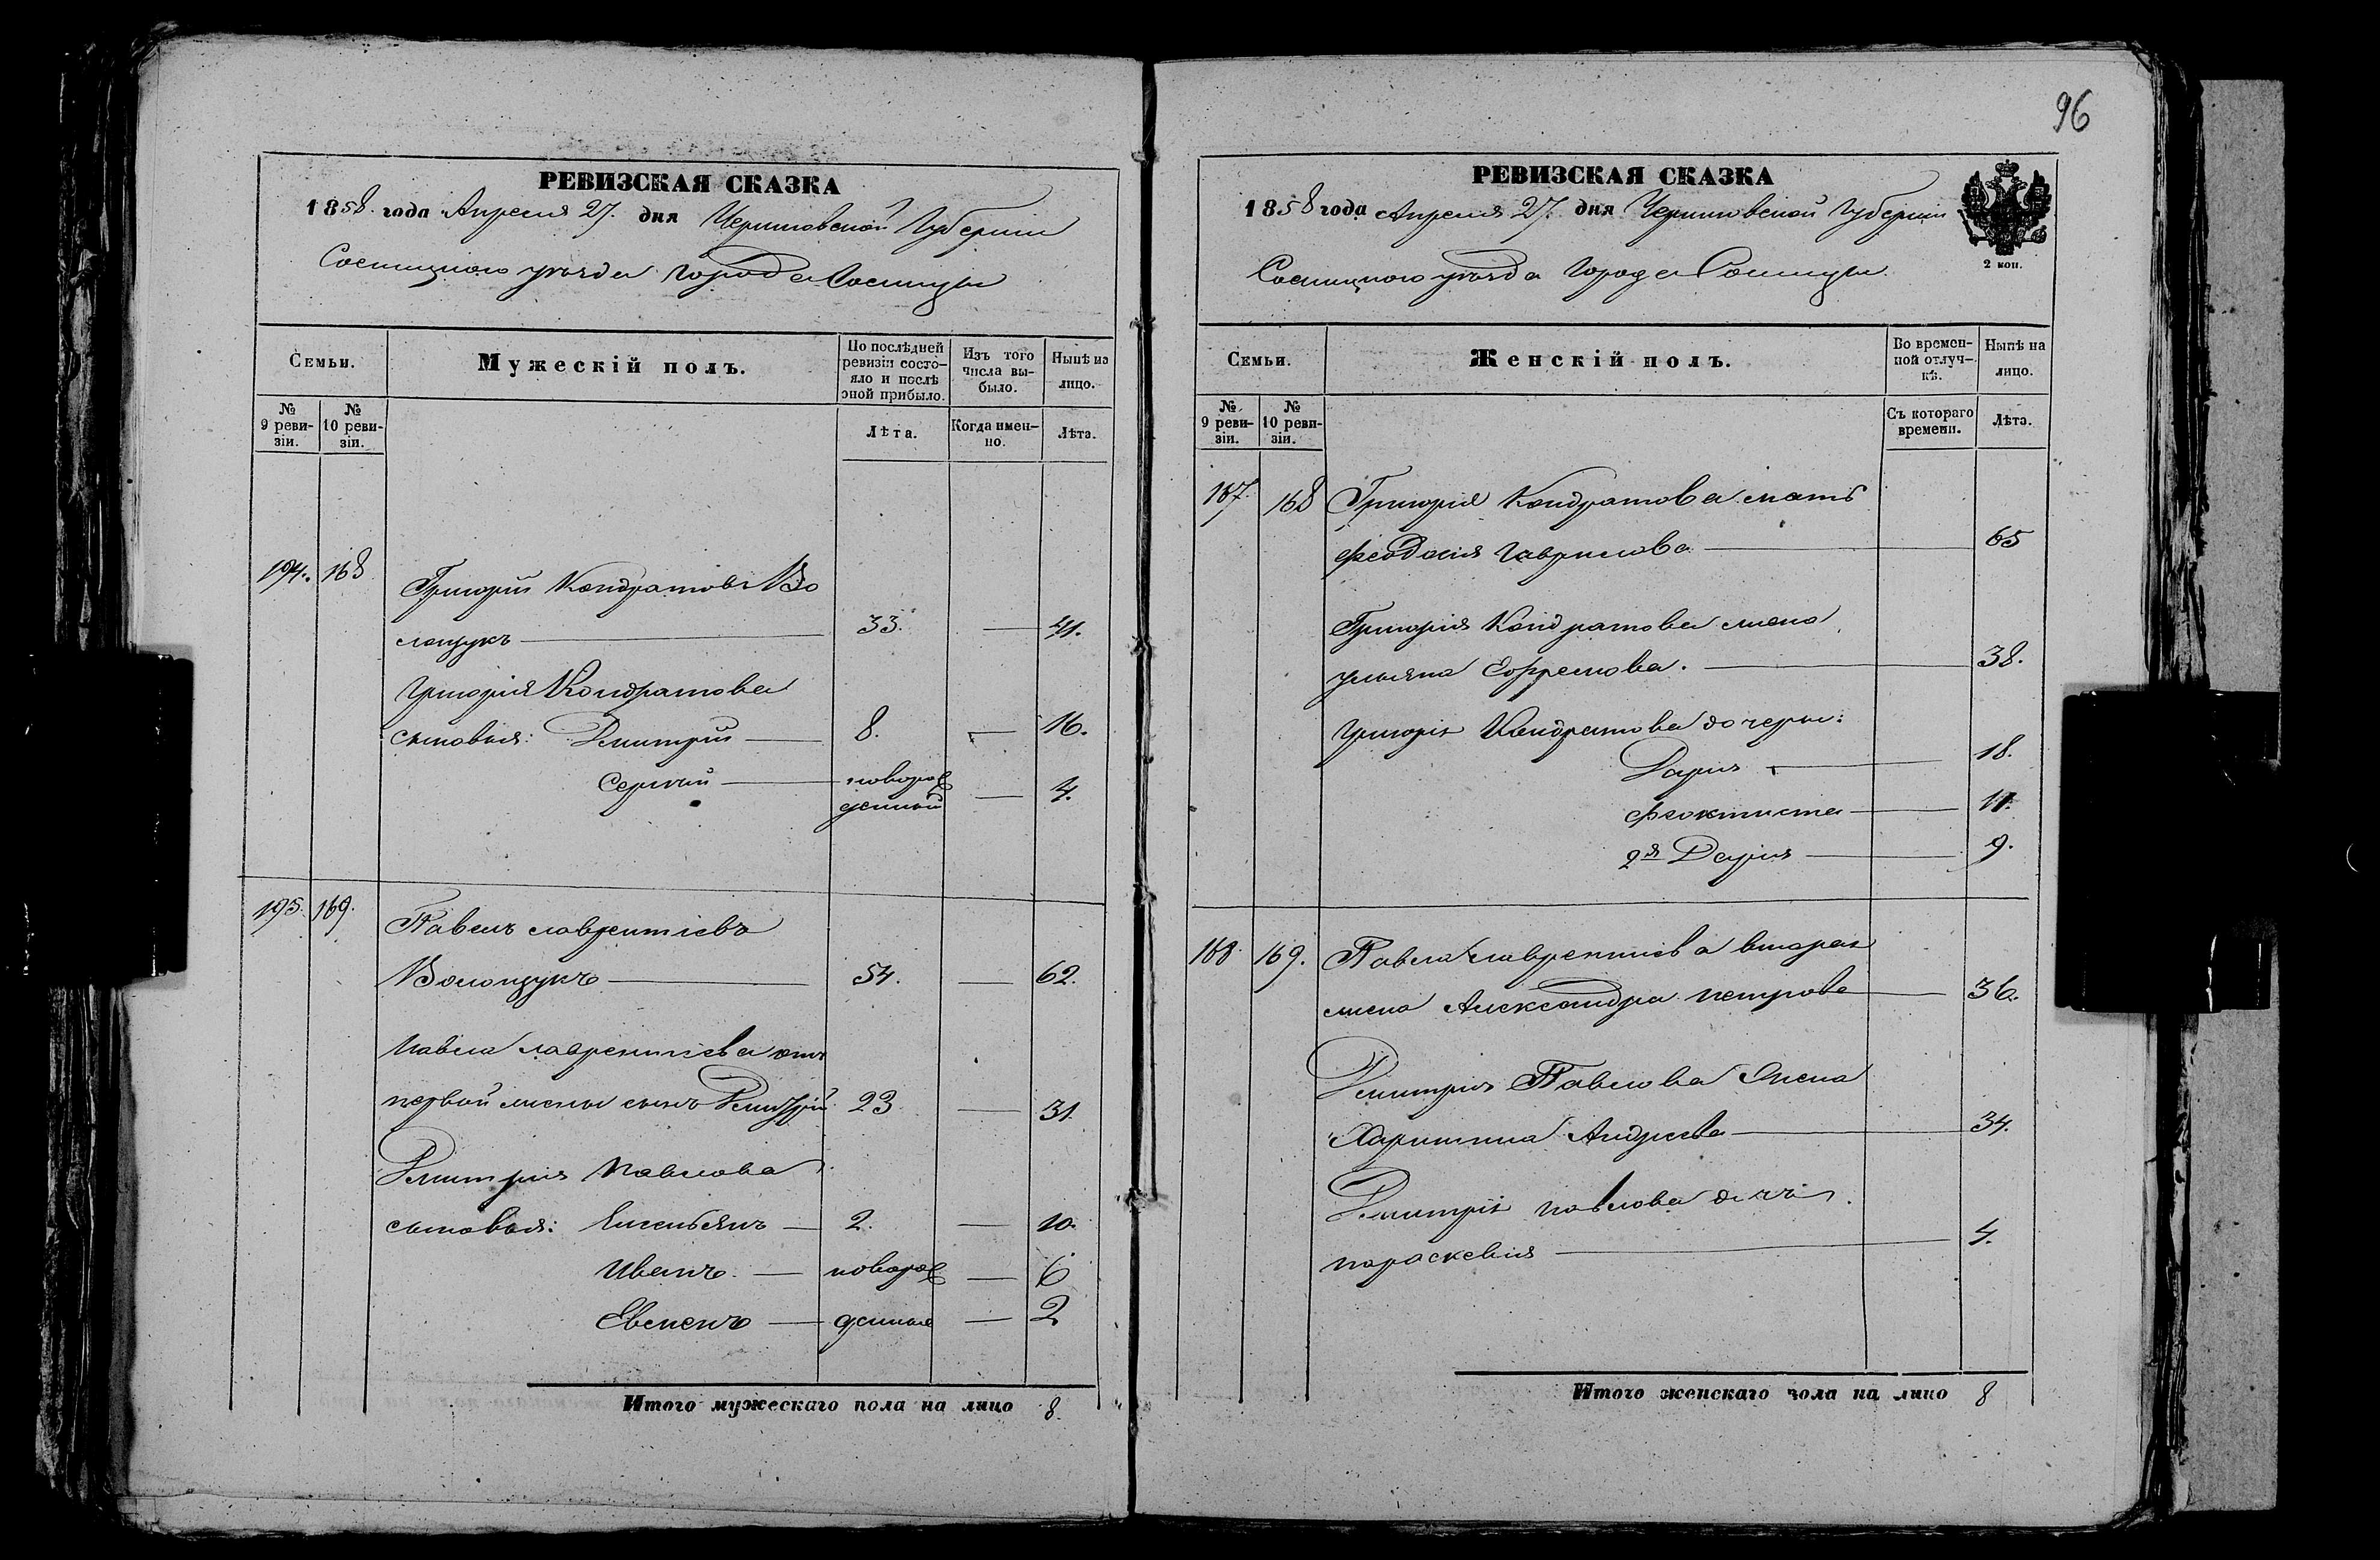 96
РЕВИЗСКАЯ СКАЗКА
1858. года Апреля 27. дня Черниговской Губернии
Сосницкого уезда Города Сосницы
Семьи.
Мужескій полъ.
По послѣдней ревизіи состояло и послѣ оной прибыло.
Изъ того числа выбыло.
Нынѣ на лицо.
№ 9 ревизіи.
№ 10 ревизіи.
Лѣта.
Когда именно.
Лѣта.
194. 168 Григорий Кондратовъ Во
лощукъ 33. — 41.
Григория Кондратова
сыновья: Димитрий — 8. — 16.
Сергий — новорож
денный — 4.
195. 169. Павелъ лаврентиевъ
Волощукъ — 54. — 62.
Павла лаврентиева отъ
первой жены сынъ Димитрий 23 — 31.
Димитрия Павлова
сыновья: Емельянъ — 2. — 10.
Иванъ. — новорож — 6
Евменъ — денные — 2
Итого мужескаго пола на лицо 8.
РЕВИЗСКАЯ СКАЗКА
1858 года Апреля 27. дня Черниговской Губернии
Сосницкого уезда Города Сосницы
2 коп.
Семьи.
Женскій полъ.
Во временной отлучкѣ.
Нынѣ на лицо.
№ 9 ревизіи.
№ 10 ревизіи.
Съ котораго времени.
Лѣта.
187. 168 Григория Кондратова мать
Феодосия Гаврилова — 65
Григория Кондратова жена
ульяна Ефремова. — 38.
Григория Кондратова дочери:
Дария — 18.
Феоктиста — 11.
2я Дария — 9.
188. 169. Павла лаврентиева вторая
жена Александра петрова — 36.
Димитрия Павлова Жена
Харитина Андреева — 34.
Димитрия павлова дочь
параскевия — 4.
Итого женскаго пола на лицо 8